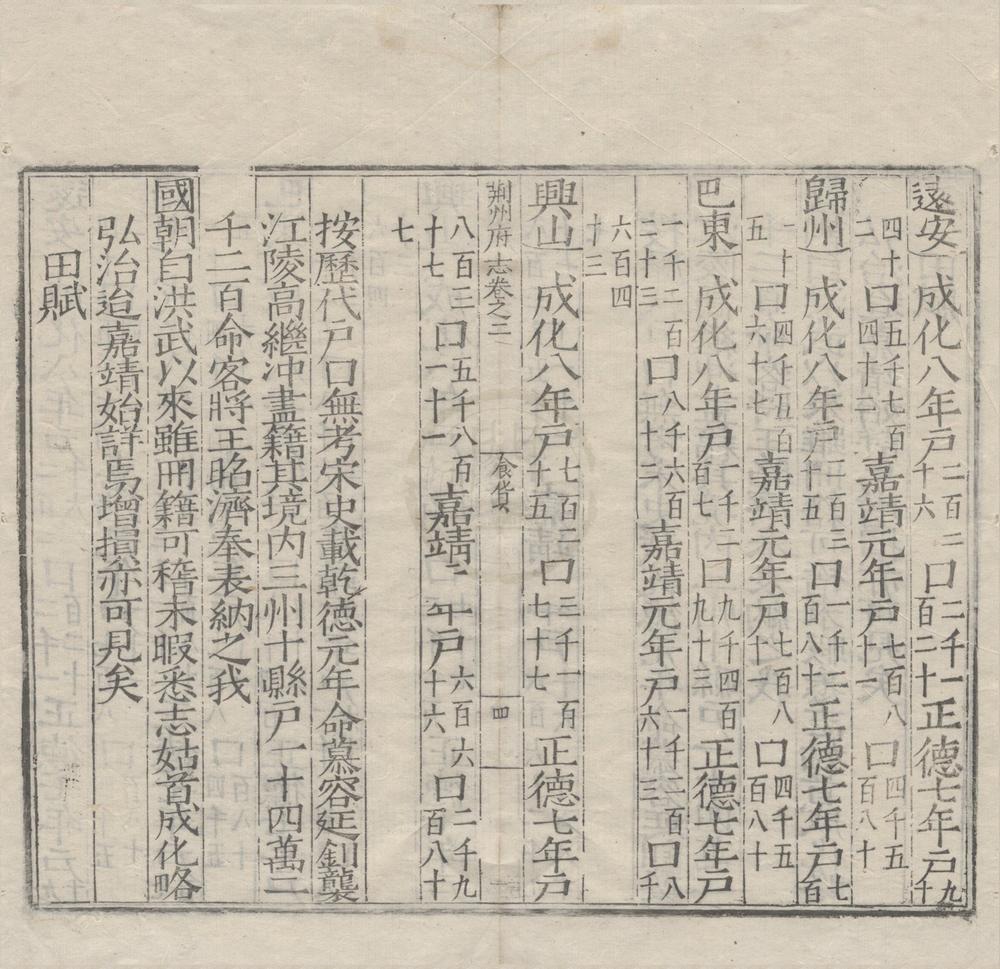 遠安 成化八年戶二百二十六口二千一百二十正德七年戶九千
四十二口五千七百四十二嘉靖元年戶七百八十一口四千五百八十
歸州 成化八年戶三百三十五口一千二百八十正德七年戶七百
一十五口四千五百六十七嘉靖元年戶七百八十一口四千五百八十
巴東 成化八年戶一千二百七口九千四百九十三正德七年戶
一千二百二十三口八千六百一十二嘉靖元年戶一千二百六十三口八千
六百四十三
興山 成化八年戶七百二十五口三千一百七十七正德七年戶
荊州府志卷之三 食貨 四
八百三十七口五千八百一十一嘉靖 年戶六百六十六口二千九百八十
七
按歷代戶口無考宋史載乾德元年命慕容延釗襲
江陵高繼沖盡籍其境內三州十縣戶一十四萬二
千二百命客將王昭濟奉表納之我
國朝自洪武以來雖冊籍可稽未暇悉志姑首成化略
弘治迨嘉靖始詳焉增損亦可見矣
田賦